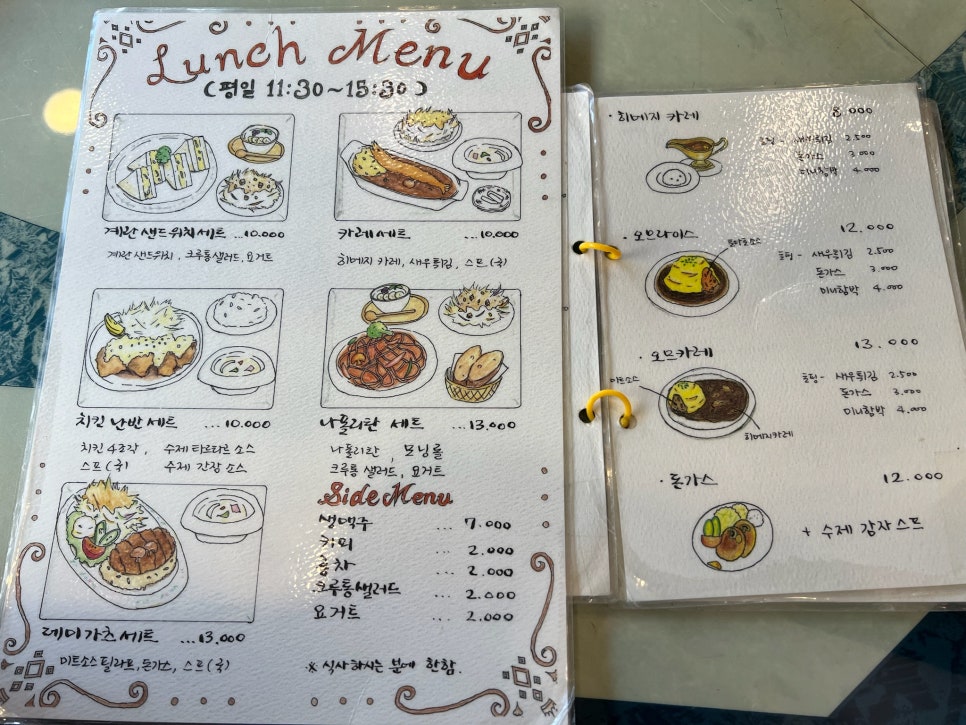 Lunch Menu
(평일 11:30~15:30)
계란 샌드위치 세트 ...10.000
계란 샌드위치, 크루통샐러드, 요거트
카레 세트 ...10.000
히메지 카레, 새우튀김, 스프(국)
치킨 난반 세트 ...10.000
치킨 4조각, 수제 타르타르 소스
스프(국) 수제 간장 소스
나폴리탄 세트 ...13.000
나폴리탄, 모닝롤
크루통 샐러드, 요거트
데미가츠 세트 ...13.000
미트소스 필라프, 돈가스, 스프(국)
Side Menu
생맥주 ... 7.000
커피 ... 2.000
홍차 ... 2.000
크루통샐러드 ... 2.000
요거트 ... 2.000
※ 식사하시는 분에 한함.
· 히메지 카레 8.000
토핑 - 새우튀김 2.500
돈가스 3.000
미니함박 4.000
· 오므라이스 12.000
토마토소스
토핑 - 새우튀김 2.500
돈가스 3.000
미니함박 4.000
· 오므카레 13.000
미트소스
토핑 - 새우튀김 2.500
돈가스 3.000
미니함박 4.000
히메지카레
· 돈가스 12.000
+ 수제 감자스프